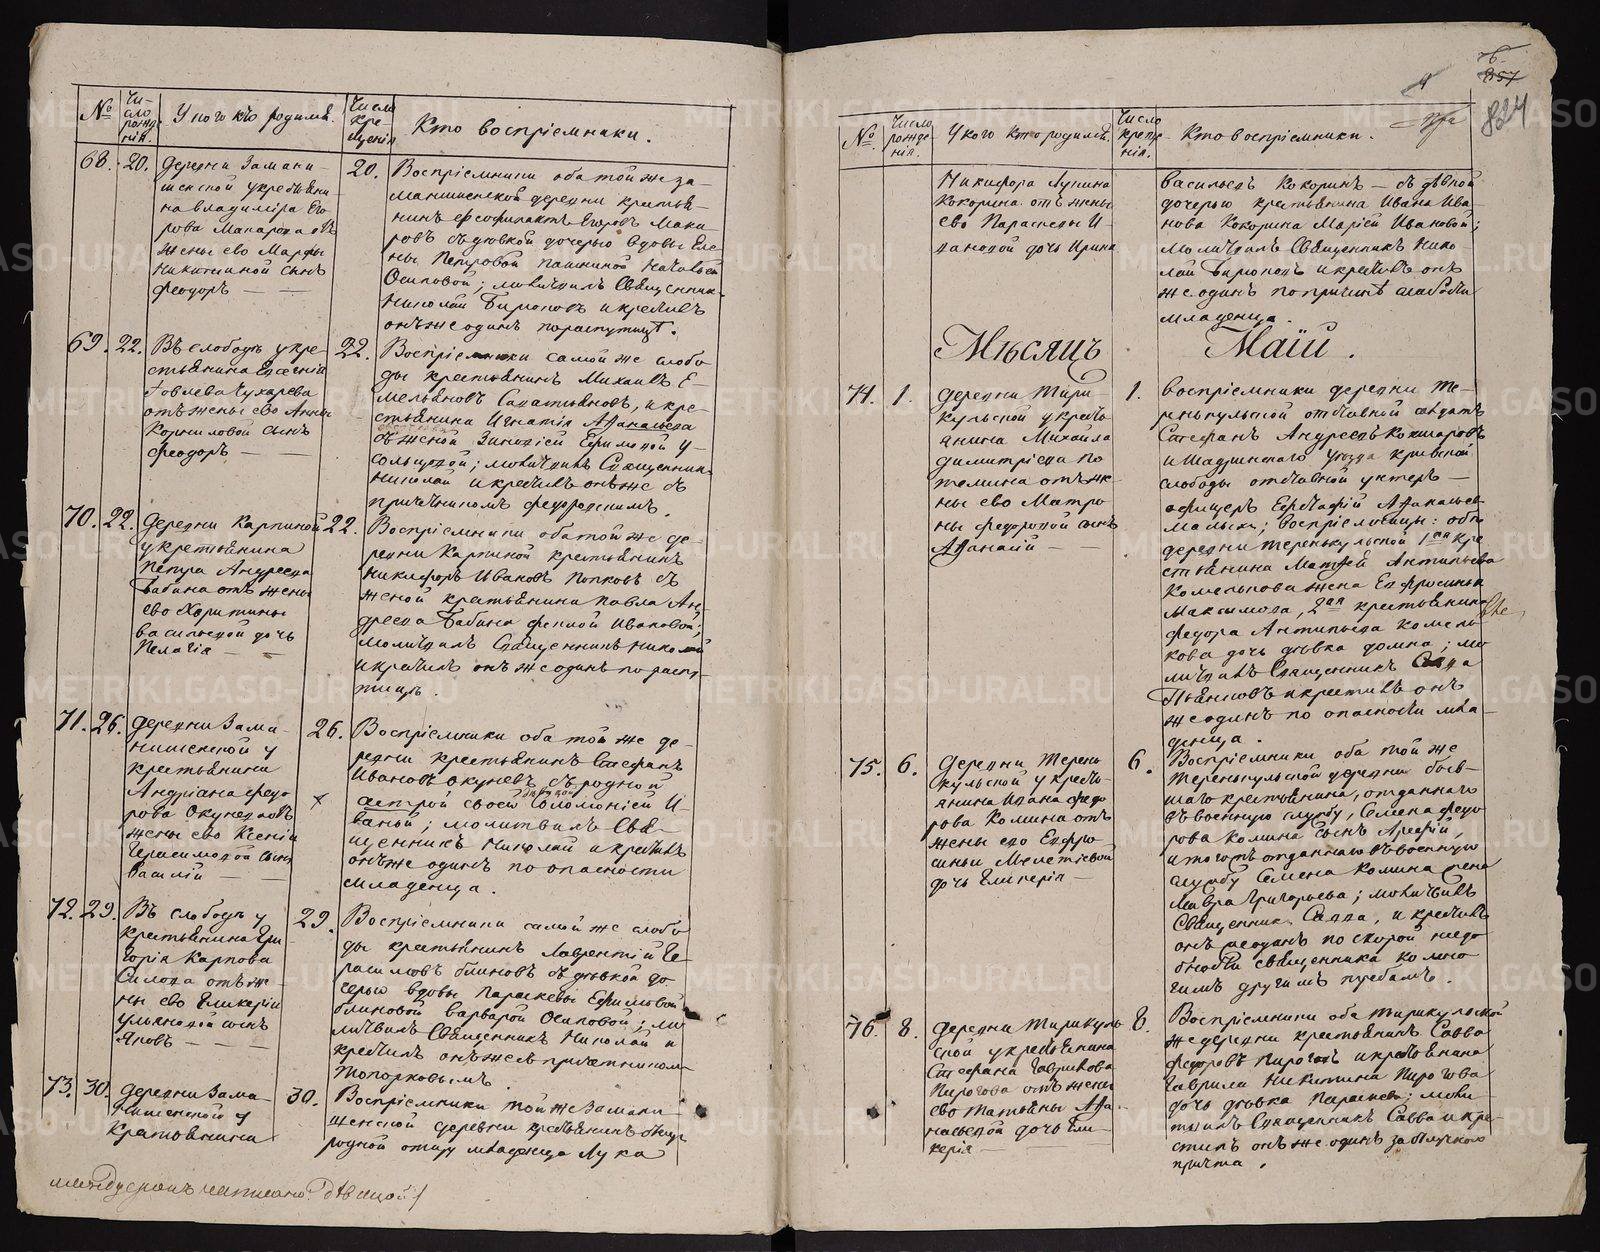 №
Число рожденія.
У кого кто родился.
Число крещенія
Кто воспріемники.
68.
20.
Деревни Замани-
женской у крестьяни-
на Владиміра Его-
рова Макарова отъ
жены ево Марфы
Никитиной сынъ
Феодоръ
20.
Воспріемники оба той же За-
маниженской деревни крестья-
нинъ Феофилактъ Егоровъ Мака-
ровъ съ девкой дочерью вдовы Еле-
ны Петровой
Осиповой; молитвилъ Священникъ
Николай Бирюковъ и крестилъ
онъ же одинъ по распутице.
69.
22.
Въ слободѣ у кре-
стьянина Евгенія
Іовлева Чухарева
отъ жены ево Анны
Корниловой сынъ
Феодоръ
22.
Воспріемники самой же слобо-
ды крестьянинъ Михаилъ Е-
мельяновъ и кре-
стьянина Игнатія Афанасьева
съ женой Зиновіей Ефимовой У-
сольцовой; молитвилъ Священникъ
Николай и крестилъ онъ же съ
причетникомъ
70.
22.
Деревни Карпиной
у крестьянина
Петра Андреева
Бабина отъ жены
ево Харитины
Васильевой дочь
Пелагія
22.
Воспріемники оба той же де-
ревни Карпиной крестьянинъ
Никифоръ Ивановъ Попковъ съ
женой крестьянина Павла Ан-
дреева Бабина Феклой Ивановой;
молитвилъ Священникъ Николай
и крестилъ онъ же одинъ по распу-
тицѣ.
71.
26.
Деревни Зама-
ниженской у
крестьянина
Андріана Федо-
рова Окунева отъ
жены ево Ксеніи
Герасимовой сынъ
Василій
26.
Воспріемники оба той же де-
ревни крестьянинъ Стефанъ
Ивановъ Окуневъ съ родной
сестрой своей Соломоніей И-
вановой; молитвилъ Свя-
щенникъ Николай и крестилъ
онъ же одинъ по опасности
младенца.
72.
29.
Въ слободѣ у
крестьянина Гри-
горія Карпова
Силова отъ же-
ны ево Гликеріи
Ульяновой сынъ
Яковъ
29.
Воспріемники самой же слобо-
ды крестьянинъ Лаврентій Ге-
расимовъ Блиновъ съ девкой до-
черью вдовы Параскевы Ефимовой
Блиновой Варварой Осиповой; мо-
литвилъ Священникъ Николай и
крестилъ онъ же съ причетникомъ
Топорковымъ.
73.
30.
Деревни Зама-
ниженской у
крестьянина
30.
Воспріемники той же Замани-
женской деревни крестьянинъ
родной отцу младенца Лука
824
№
Число рожденія.
У кого кто родился.
Число крещенія.
Кто воспріемники.
Никифора Лукина
Кокорина отъ жены
ево Параскевы И-
вановой дочь Ирина
Васильевъ Кокоринъ — съ девкой
дочерью крестьянина Ивана Ива-
нова Кокорина Марьей Ивановой;
молитвилъ Священникъ Нико-
лай Бирюковъ и крестилъ онъ
же одинъ по причине слабости
младенца.
Мѣсяцъ Маій.
74.
1.
Деревни Тири-
кульской у кресть-
янина Михаила
Димитріева По-
томина отъ же-
ны ево Матро-
ны Федоровой сынъ
Афанасій
1.
Воспріемники деревни Те-
ренькульской отставной солдатъ
Стефанъ Андреевъ Кокшаровъ
и Шадринскаго уѣзда Кривской
слободы отставной унтеръ —
офицеръ Евстафій Афанасьев
Малыхъ; воспріемницы: оба
деревни Теренькульской 1ая кре-
стьянина Матфей Антипьева
Комелькова жена Евфросинья
Максимова, 2ая крестьянина
Федора Антипьева Комель-
кова дочь девка Домна; мо-
литвилъ Священникъ Савва
Пьянковъ и крестилъ онъ
же одинъ по опасности мла-
денца.
75.
6.
Деревни Терень-
кульской у кресть-
янина Ивана Федо-
рова Комина отъ
жены ево Евфро-
синьи Мелетіевой
дочь Гликерія
6.
Воспріемники оба той же
Теренькульской деревни быв-
шаго крестьянина, отданнаго
въ военную службу, Семена Федо-
рова Комина сынъ Арефій,
и того жъ отданнаго въ военную
службу Семена Комина жена
Мавра Григорьева; молитвилъ
Священникъ Савва, и крестилъ
онъ же одинъ по скорой надо-
бности священника ко мно-
гимъ другимъ требамъ.
76.
8.
Деревни Тирикуль-
ской у крестьянина
Стефана Гаврилова
Пирогова отъ жены
ево Татьяны Афа-
насьевой дочь Гли-
керія
8.
Воспріемники оба Тирикульской
же деревни крестьянинъ Савва
Федоровъ Пироговъ и крестьянина
Гаврила Никитина Пирогова
дочь девка Параскева; моли-
твилъ Священникъ Савва и кре-
стилъ онъ же одинъ за отлучкою
причта.
METRIKI.GASO-URAL.RU